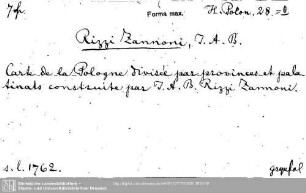 7f. Forma max. H. Polon. 28
Rizzi Zannoni, J. A. B.
Carte de la Pologne divisée par provinces et pala
tinats construite par J. A. B. Rizzi Zannoni.
s. l. 1762.
Sächsische Landesbibliothek -
Staats- und Universitätsbibliothek Dresden